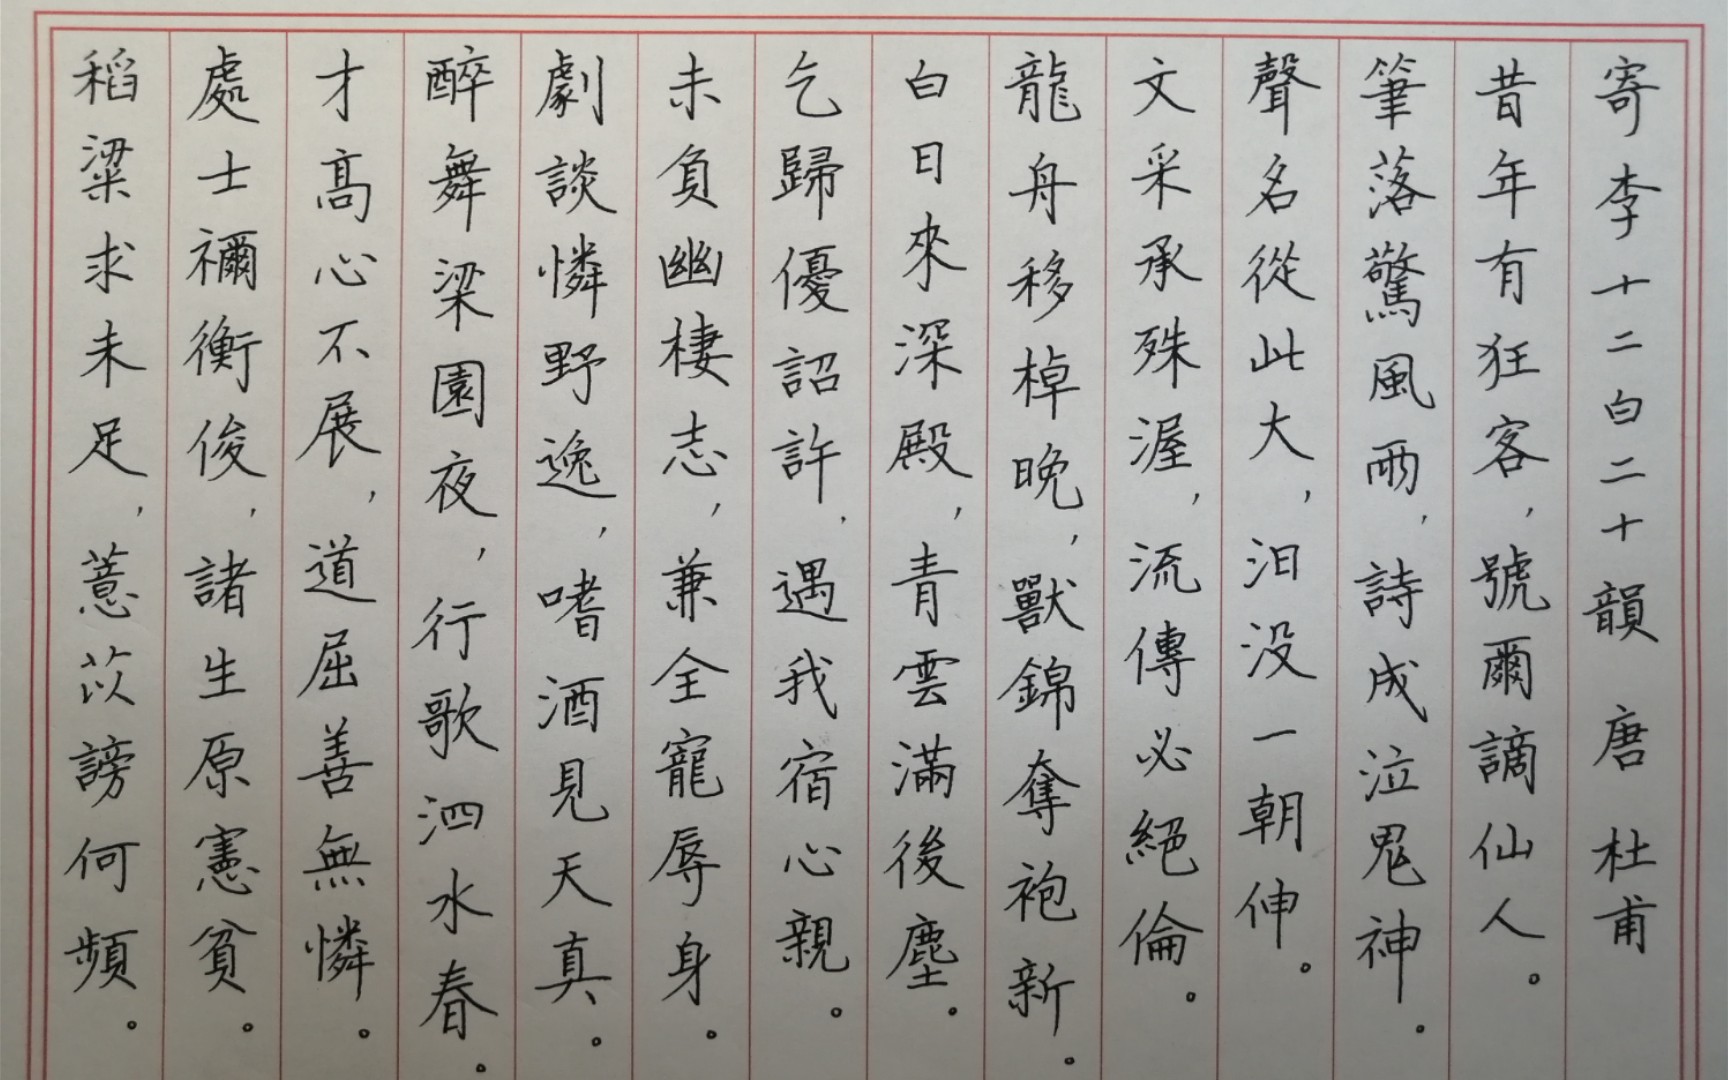 寄李十二白二十韻 唐 杜甫
昔年有狂客，號爾謫仙人。
筆落驚風雨，詩成泣鬼神。
聲名從此大，汩没一朝伸。
文采承殊渥，流傳必絕倫。
龍舟移棹晚，獸錦奪袍新。
白日來深殿，青雲滿後塵。
乞歸優詔許，遇我宿心親。
未負幽棲志，兼全寵辱身。
劇談憐野逸，嗜酒見天真。
醉舞梁園夜，行歌泗水春。
才高心不展，道屈善無憐。
處士禰衡俊，諸生原憲貧。
稻粱求未足，薏苡謗何頻。